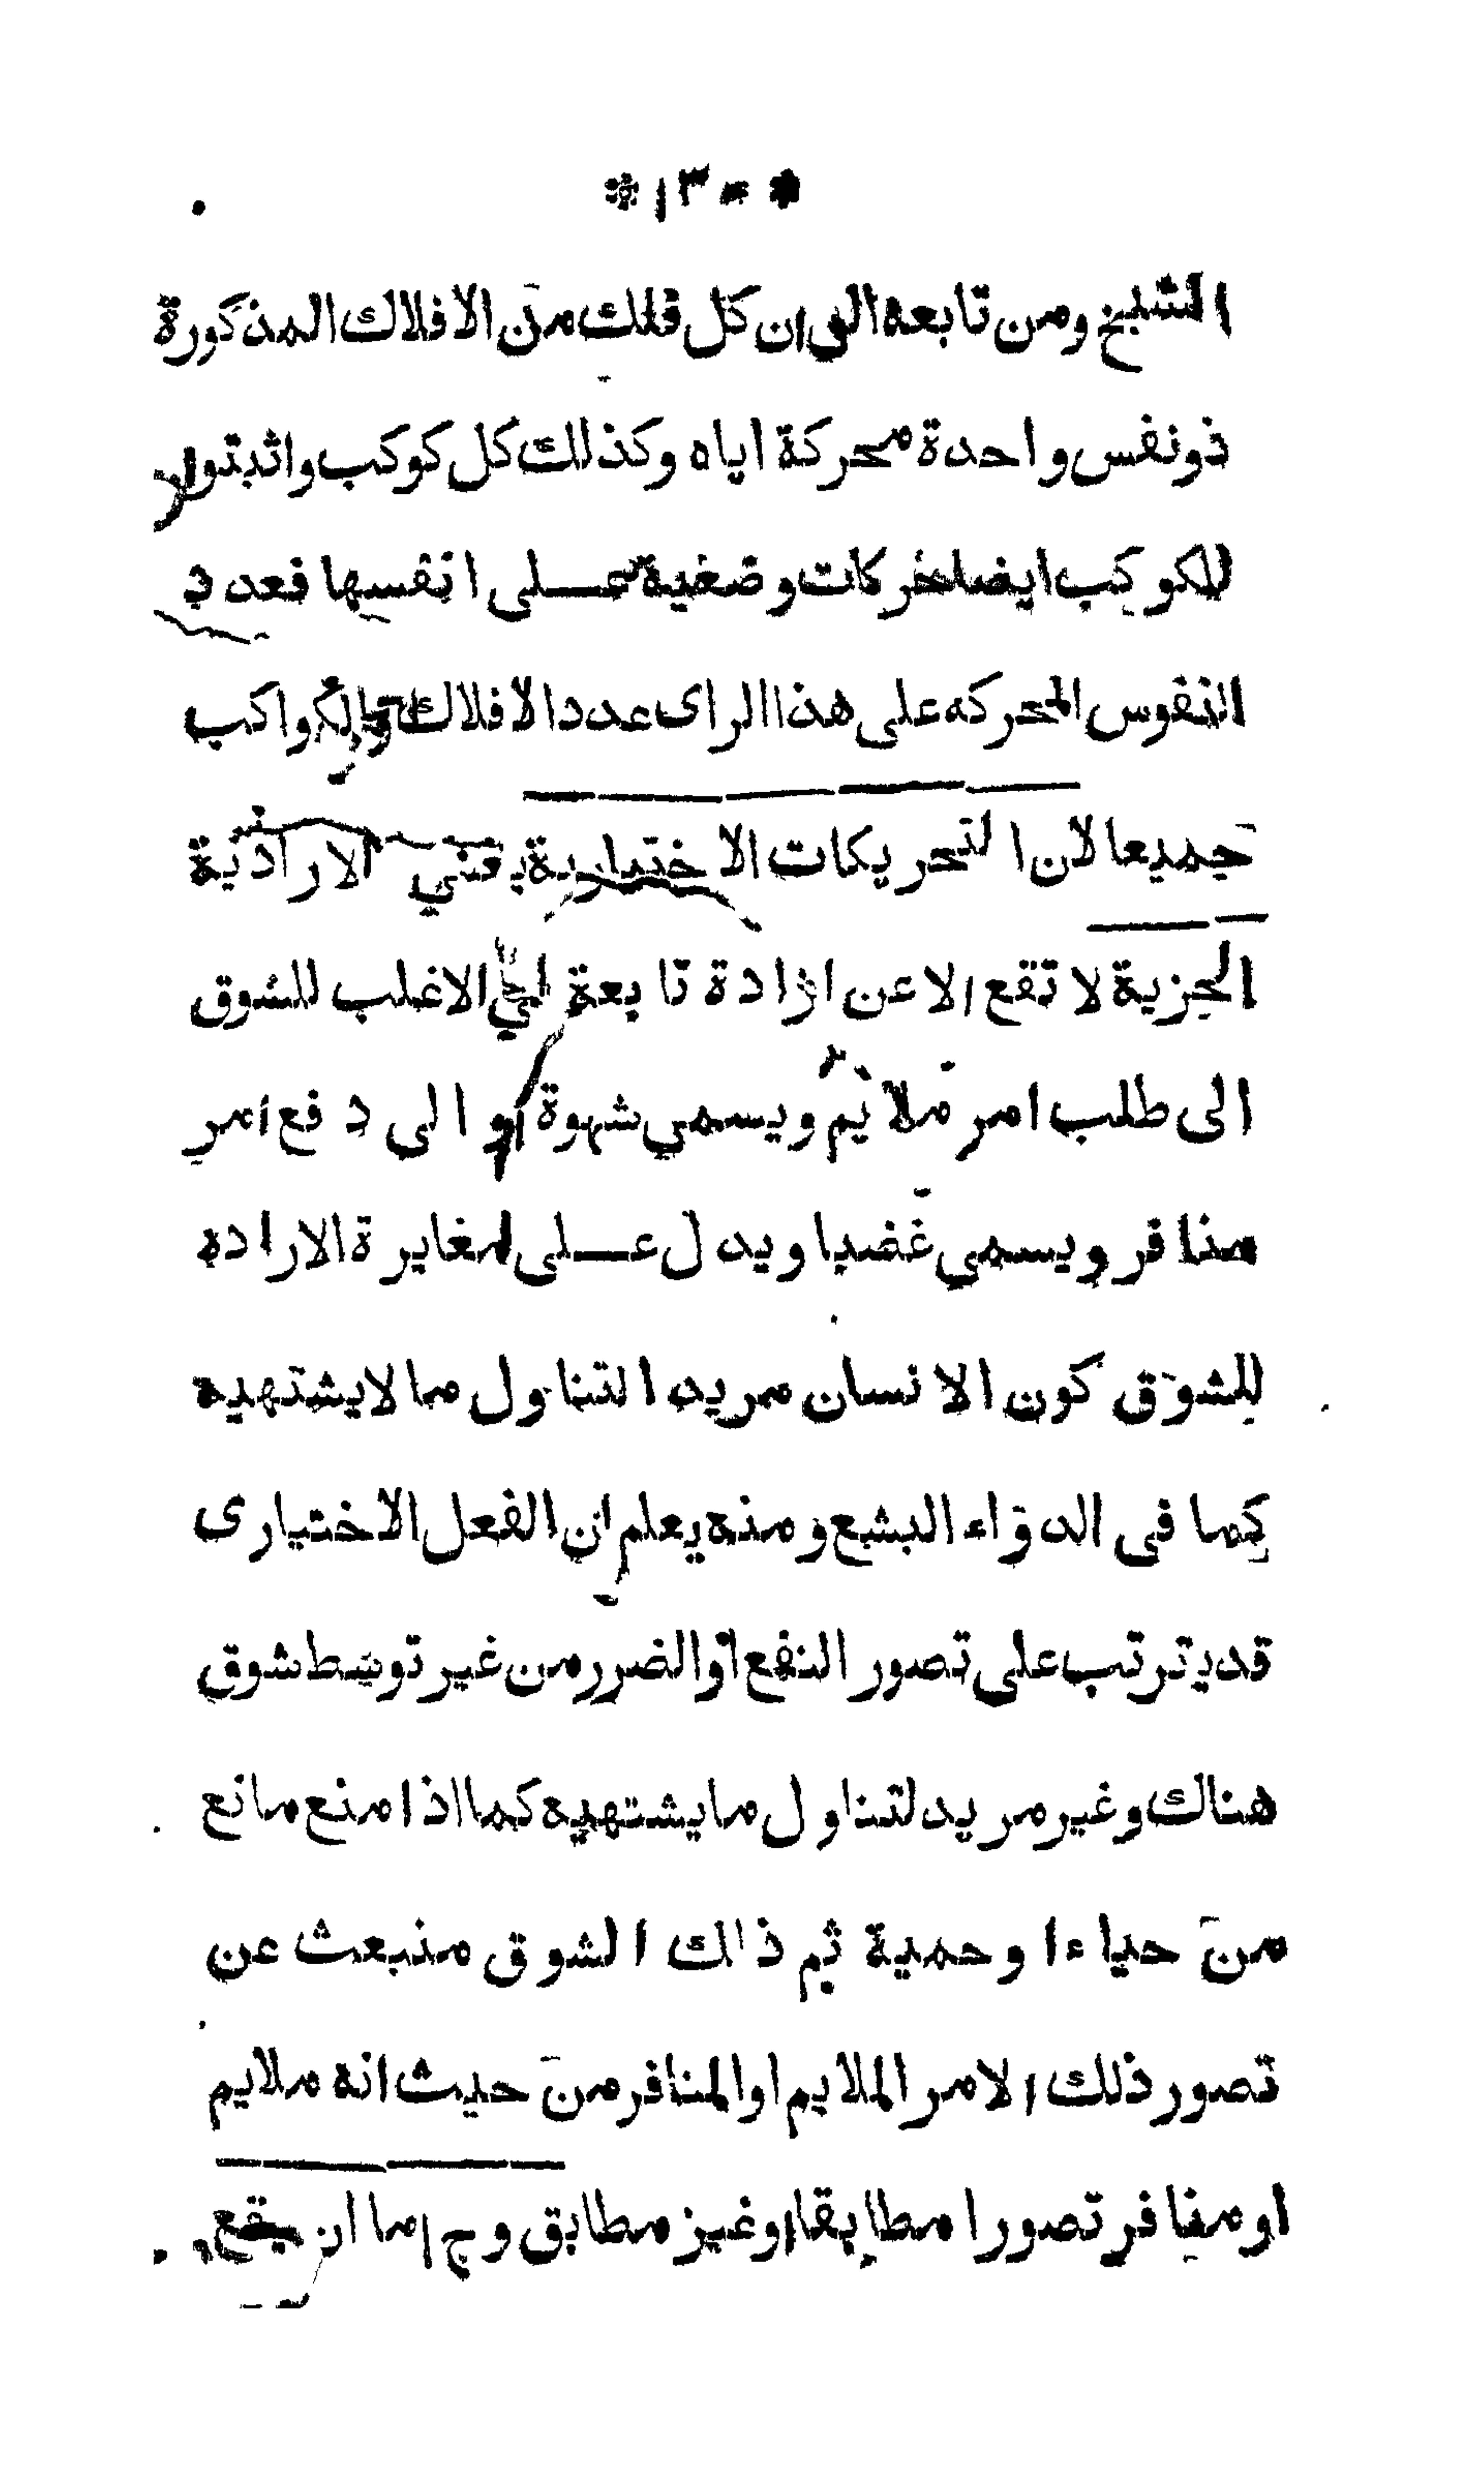 الشيخ ومن تابعه الى ان كل فلك من الافلاك المذكورة
ذو نفس واحدة محركة اياه وكذلك كل كوكب واثبتوا
للكوكب ايضا حركات وضعية على انفسها فعدد
النفوس المحركه على هذا الراى عدد الافلاك والكواكب
جميعا لان التحريكات الاختيارية يعني الارادية
الجزية لا تقع الا عن ارادة تابعة في الاغلب للشوق
الى طلب امر ملائم ويسمى شهوة او الى دفع امر
منافر ويسمى غضبا ويدل على مغايرة الاراده
للشوق كون الانسان مريدا لتناول ما لا يشتهيه
كما فى الدواء البشع ومنه يعلم ان الفعل الاختيارى
قد يترتب على تصور النفع او الضرر من غير توسط شوق
هناك وغير مريد لتناول ما يشتهيه كما اذا منع مانع
من حياء او حمية ثم ذلك الشوق منبعث عن
تصور ذلك الامر الملايم او المنافر من حيث انه ملايم
او منافر تصورا مطابقا او غير مطابق وح اما ان يقع